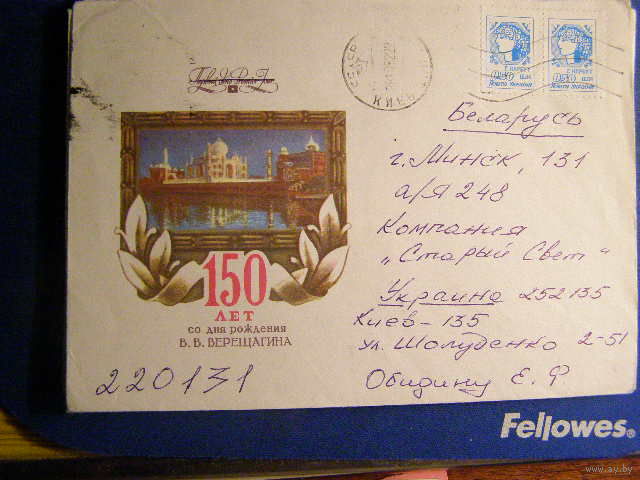 150
ЛЕТ
со дня рождения
В. В. ВЕРЕЩАГИНА
220131
КИЕВ
Г. НАРБУТ
Пошта України
Г. НАРБУТ
Пошта України
Беларусь
г. Минск, 131
а/я 248
Компания
„Старый Свет"
Украина 252135
Киев - 135
ул. Шолуденко 2-51
Обидину Е. Ф
Fellowes.
www.ay.by